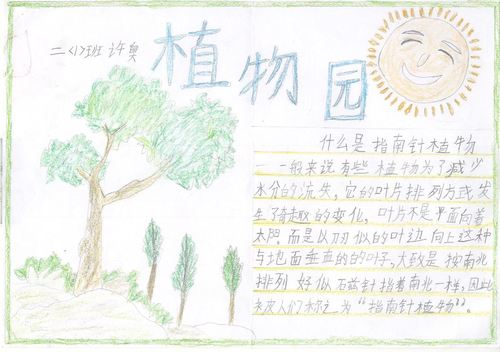 二〈1〉班 许奥
植物园
什么是指南针植物
一般来说有些植物为了减少
水分的流失，它的叶片排列方式发
生了有趣的变化，叶片不是平面向着
太阳而是以刃似的叶边向上这种
与地面垂直的的叶子，大致是按南北
排列好似石兹针指着南北一样，因此
被人们称之为“指南针植物”。